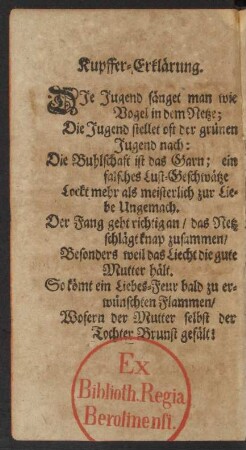 Kupffer-Erklärung.
DIe Jugend fänget man wie
Vogel in dem Netze;
Die Jugend stellet oft der grünen
Jugend nach:
Die Buhlschaft ist das Garn; ein
falsches Lust-Geschwätze
Lockt mehr als meisterlich zur Lie-
be Ungemach.
Der Fang geht richtig an/ das Netz
schlägt knap zusammen/
Besonders weil das Liecht die gute
Mutter hält.
So kömt ein Liebes-Feur bald zu er-
wünschten Flammen/
Wofern der Mutter selbst der
Tochter Brunst gefält!
Ex
Biblioth. Regia
Berolinensi.